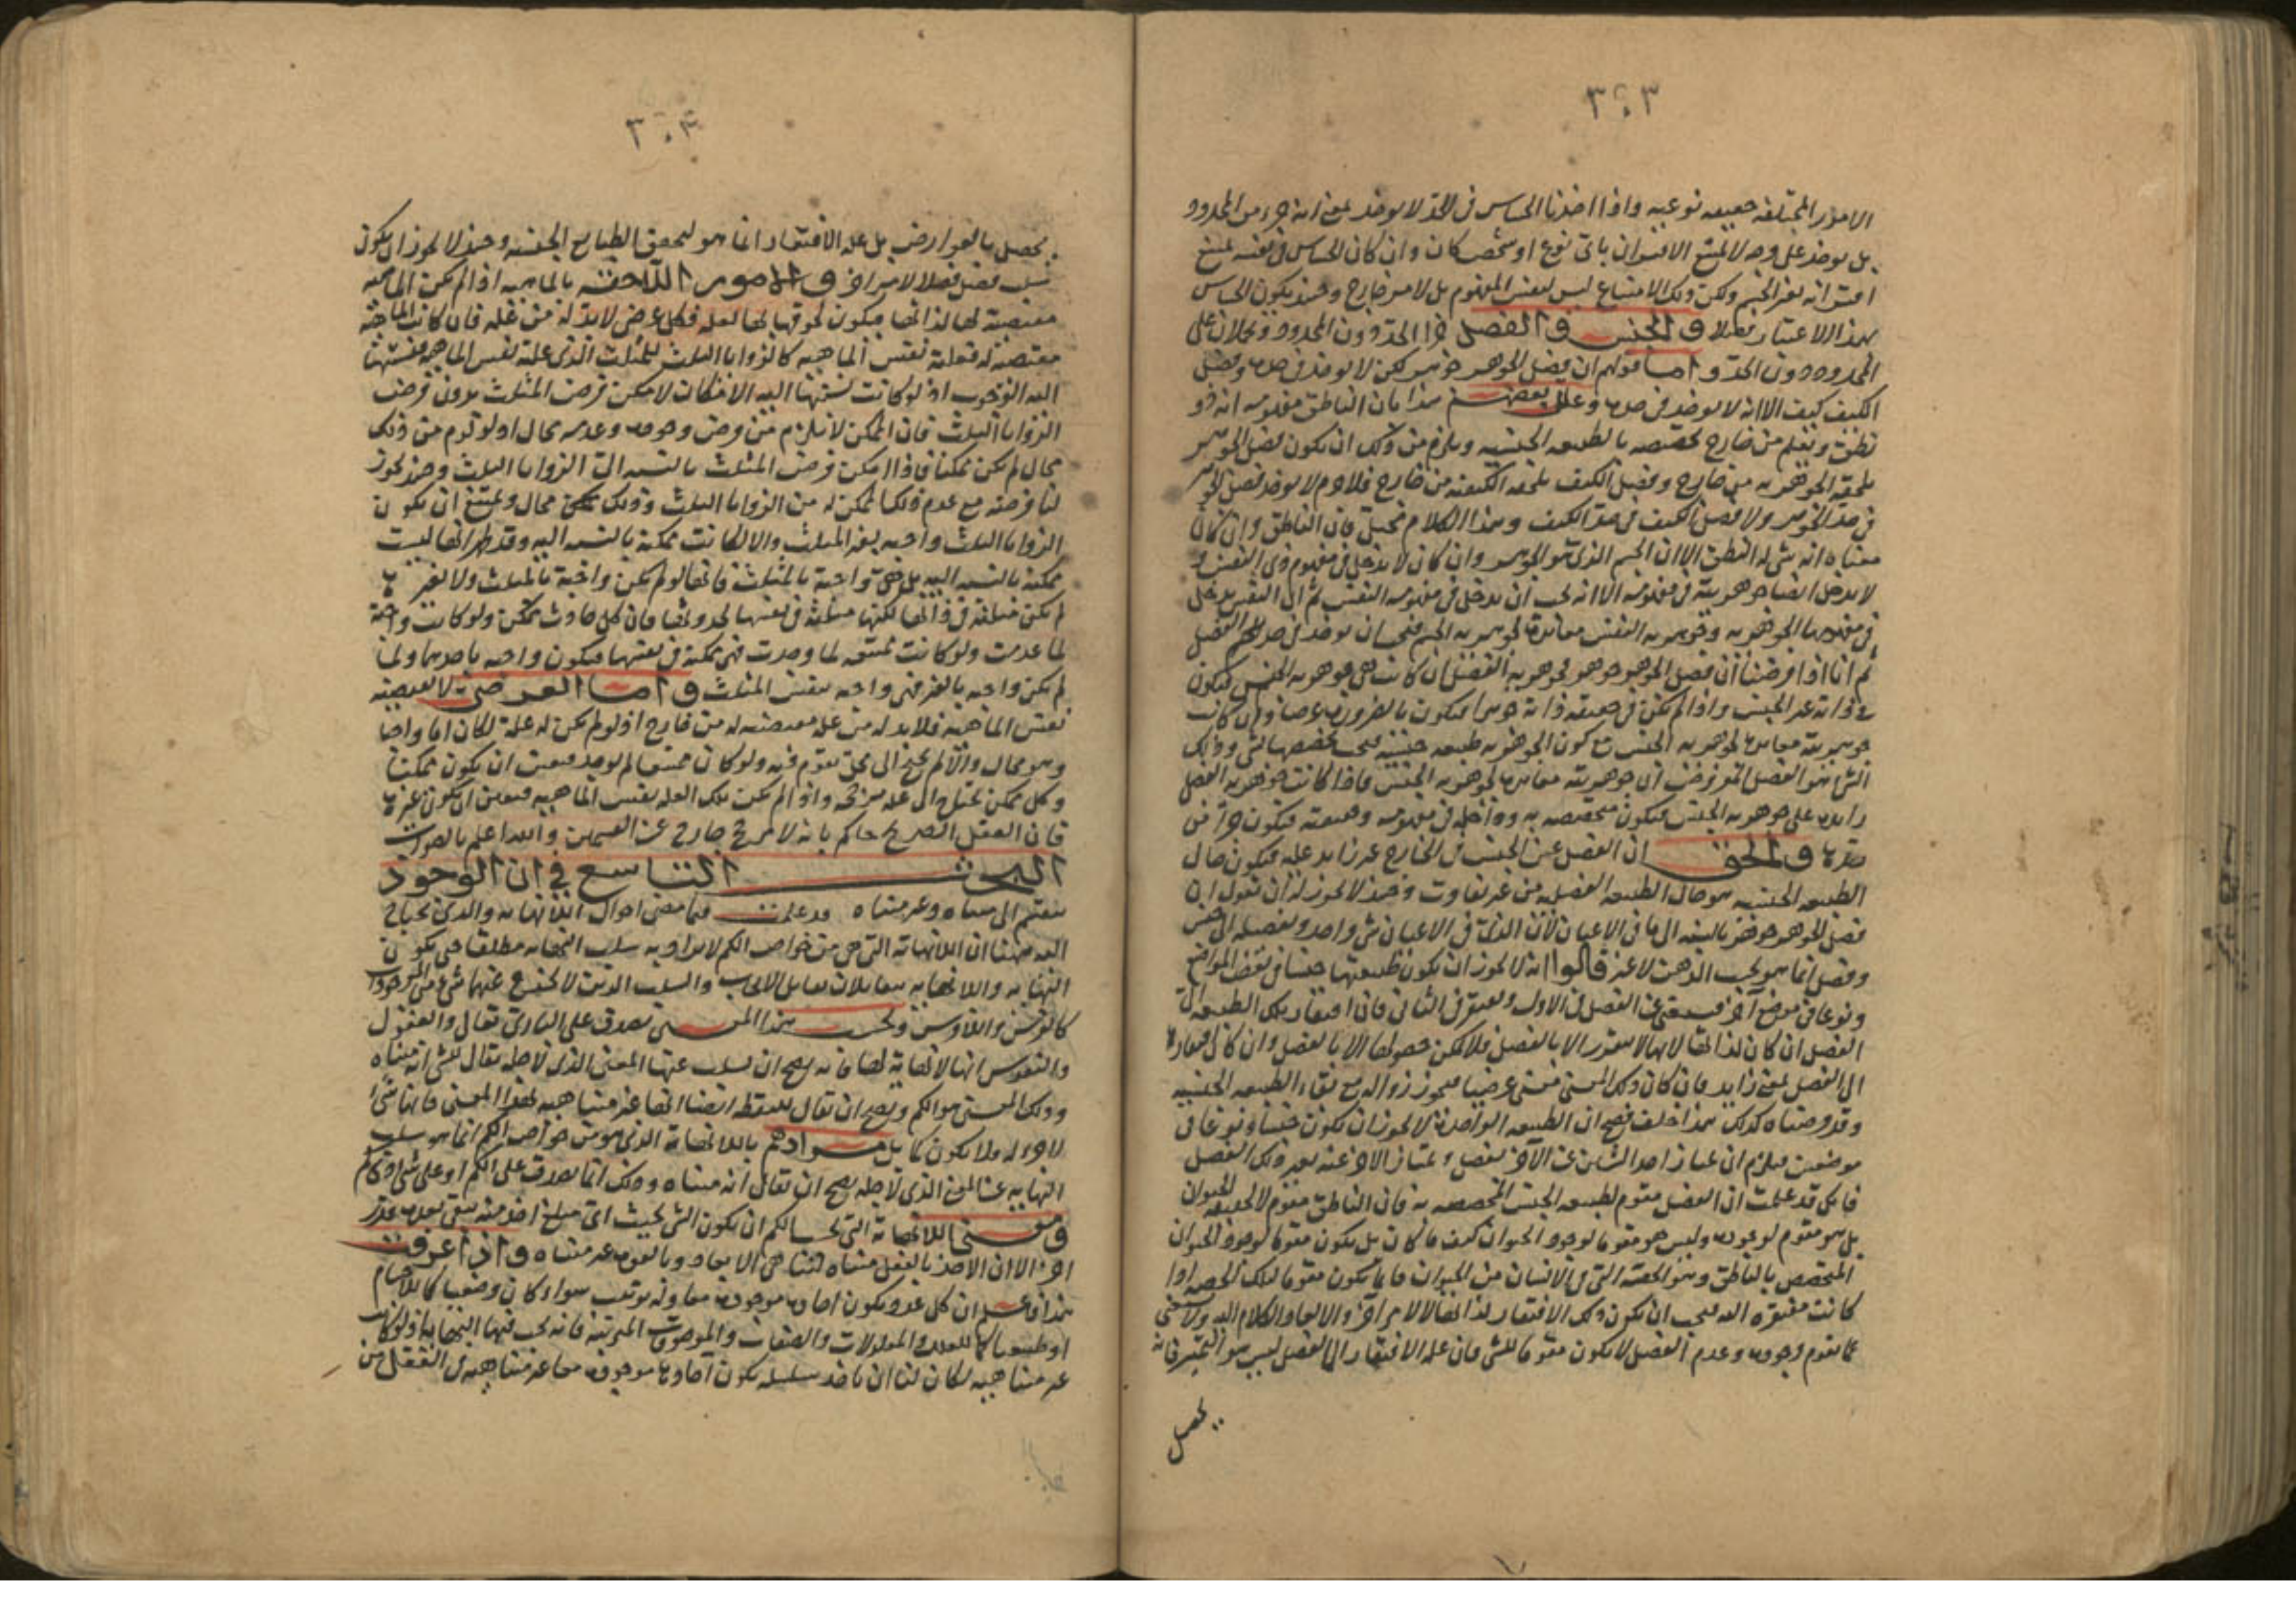 ٣٠٣
الامور المختلفة حقيقة نوعية واذا اخذنا الحساس في الحد لا يوخذ بمعنى انه جزء من المحدود
بل يوخذ على وجه لا يمتنع الاقتران باي نوع او شخص كان وان كان الحساس في نفسه يمتنع
اقترانه بغير الجسم ولكن ذلك الامتناع ليس لنفس المفهوم بل لامر خارج وحينئذ يكون الحساس
بهذا الاعتبار فصلا والجنس والفصل جزا الحد دون المحدود ويحملان على
المحدود دون الحد واما قولهم ان فصل الجوهر جوهر لكن لا يوخذ في حده وفصل
الكيف كيف الا انه لا يوخذ في حده وعلل بعضهم هذا بان الناطق مفهومه انه ذو
نطق ويعلم من خارج تخصصه بالطبيعه الجنسيه ويلزم من ذلك ان يكون فصل الجوهر
يلحقه الجوهريه من خارج وفصل الكيف يلحقه الكيفيه من خارج فلا جرم لا يوخذ فصل الجوهر
في حد الجوهر ولا فصل الكيف في حد الكيف وهذا الكلام مختل فان الناطق وان كان
معناه انه شي له النطق الا ان الجسم الذي هو الجوهر وان كان لا يدخل في مفهوم ذي النفس و
لا يدخل ايضا جوهريته في مفهومه الا انه يجب ان يدخل في مفهومه النفس ثم ان النفس يدخل
في مفهومها الجوهريه وجوهريه النفس مغايرة لجوهريه الجسم فيجب ان يوخذ في حد الفصل
ثم انا اذا فرضنا ان فصل الجوهر جوهر فجوهريه الفصل ان كانت هي جوهريه الجنس فيكون
في ذاته غير الجنس واذا لم يكن في حقيقه ذاته جوهرا فيكون بالضرورة عرضا وان كانت
جوهريته مغايرة لجوهريه الجنس مع كون الجوهريه طبيعه جنسيه فيجب تخصصها بشي وذلك
الشي هو الفصل المفروض ان جوهريته مغايرة لجوهريه الجنس فاذا كانت جوهريه الفصل
زايدة على جوهريه الجنس فيكون متخصصه به وداخله في مفهومه وهويته فيكون جزأ من
حده والحق ان الفصل عين الجنس في الخارج غير زايد عليه فيكون حال
الطبيعه الجنسيه هو حال الطبيعه الفصليه من غير تفاوت وحينئذ لا يجوز له ان يقول ان
فصل الجوهر جوهر بالنسبه الى ما في الاعيان لان الذي في الاعيان شي واحد وتفصيله الى جنس
وفصل انما هو بحسب الذهن لا غير قالوا انه لا يجوز ان يكون طبيعتها جنسا في بعض المواضع
ونوعا في موضع آخر فيستغني عن الفصل في الاول ويفتقر في الثاني فان افتقار تلك الطبيعه الى
الفصل ان كان لذاتها لانها لا يتقرر الا بالفصل فلا يمكن حصولها الا بالفصل وان كان افتقارها
الى الفصل لمعنى زايد فان كان ذلك المعنى معنى عرضيا فيجوز زواله مع بقاء الطبيعه الجنسيه
وقد فرضناه كذلك هذا خلف فصح ان الطبيعه الواحدة لا يجوز ان يكون جنسا ونوعا في
موضعين فيلزم ان يمتاز احد الشيئين عن الآخر بفصل ويمتاز الآخر عنه بغير ذلك الفصل
فانك قد علمت ان الفصل مقوم لطبيعه الجنس المتخصصه به فان الناطق مقوم لا لحقيقه الحيوان
بل هو مقوم لوجوده وليس هو مقوما لوجود الحيوان كيف ما كان بل يكون مقوما لوجود الحيوان
المتخصص بالناطق وهو الحصة التي في الانسان من الحيوان فانما يكون مقوما لتلك الحصه اذا
كانت مفتقره اليه فيجب ان يكون ذلك الافتقار لذاتها لا لامر آخر والا لعاد الكلام اليه ولان شي
مما يقوم وجوده وعدم الفصل لا يكون مقوما للشي فان علة الافتقار الى الفصل ليس هو التميز فانه
يحصل
٣٠٤
يحصل بالعوارض بل علة الافتقار انما هو ليحقق الطبايع الجنسه وحينئذ لا يجوز ان يكون
سلب فصل فصلا لامر آخر والامور اللاحقه بالماهيه اذا لم يكن الماهيه
مقتضيه لها لذاتها فيكون لحوقها لها لعلة فكل عرضي لا بد له من علة فان كانت الماهيه
مقتضيه له فعلته نفس الماهيه كالزوايا الثلث للمثلث الذي علته نفس الماهيه فنسبتها
اليه الوجوب اذ لو كانت نسبتها اليه الامكان لامكن فرض المثلث بدون فرض
الزوايا الثلث فان الممكن لا يلزم من فرض وجوده وعدمه محال اذ لو لزم من ذلك
محال لم يكن ممكنا فاذا امكن فرض المثلث بالنسبه الى الزوايا الثلث وحينئذ يجوز
لنا فرضه مع عدم ذلك الممكن له من الزوايا الثلث وذلك محال ويمتنع ان يكون
الزوايا الثلث واجبه بغير المثلث والا لكانت ممكنة بالنسبه اليه وقد ظهر انها ليست
ممكنه بالنسبه اليه بل هي واجبة بالمثلث فانها لو لم يكن واجبة بالمثلث ولا بغيره
لم يكن ممتنعة في ذاتها لكنها ممكنة في نفسها لحدوثها فان كل حادث ممكن ولو كانت واجبة
لما عدمت ولو كانت ممتنعه لما وجدت فهي ممكنه في نفسها فيكون واجبه باحدهما ولما
لم يكن واجبه بالغير فهي واجبه بنفس المثلث واما العرضي الذي لا يقتضيه
نفس الماهيه فلا بد له من علة مقتضيه له من خارج اذ لو لم يكن له علة لكان اما واجبا
وهو محال والا لم يحتج الى محل يقوم فيه ولو كان ممتنعا لم يوجد فتعين ان يكون ممكنا
وكل ممكن يحتاج الى علة مرجحه واذا لم يكن تلك العلة نفس الماهيه فتعين ان يكون غيرها
فان العقل الصريح حاكم بانه لا مرجح خارج عن القسمين والله اعلم بالصواب
البحث التاسع في ان الوجود
ينقسم الى متناه وغير متناه قد علمت فيما مضى احوال اللانهايه والذي يحتاج
اليه ههنا ان اللانهايه التي هي من خواص الكم لا يراد به سلب النهايه مطلقا حتى يكون
النهايه واللانهايه متقابلان تقابل الايجاب والسلب الذين لا يخرج عنهما شي من الموجودات
كالفرس واللافرس وبحسب هذا المعنى يصدق على الباري تعالى والعقول
والنفوس انها لا نهاية لها فانه يصح ان يسلب عنها المعنى الذي لاجله يقال للشي انه متناه
وذلك المعنى هو الكم ويصح ان يقال للنقطه ايضا انها غير متناهيه لهذا المعنى فانها شي
لا جزء له ولا يكون كما بل مرادهم باللانهاية الذي هو من خواص الكم انما هو سلب
النهايه عن المعنى الذي لاجله يصح ان يقال انه متناه وذلك انما يصدق على الكم او على شي ذي كم
ومعنى اللانهاية التي بحسب الكم ان يكون الشي بحيث اي مبلغ اخذ منه يبقى بعده قدر
آخر الا ان الاخذ بالفعل متناه لتناهي الابعاد وبالقوة غير متناه واذا عرفت
هذا فاعلم ان كل عدد يكون احاده موجودة معا وله ترتيب سواء كان وضعيا كالاجسام
او طبيعيا كالعلل والمعلولات والصفات والموصوفات المترتبه فانه يجب فيها النهاية اذ لو كانت
غير متناهيه لكان لنا ان ناخذ سلسله يكون آحادها موجودة معا غير متناهيه في العقل من